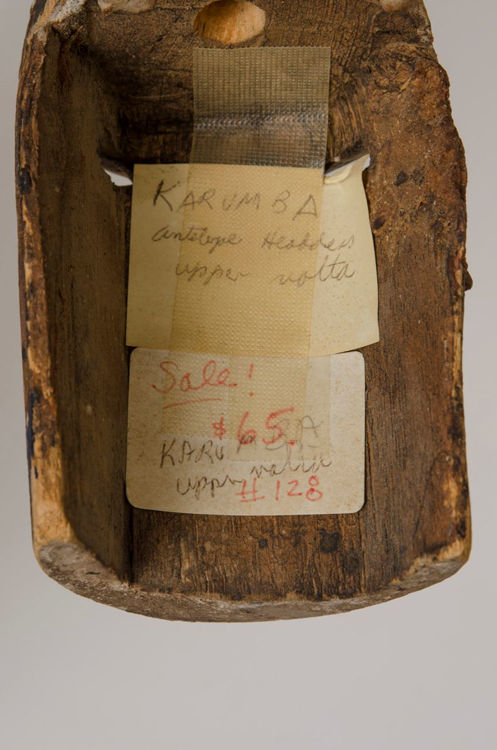 KARUMBA
antelope Headdess
upper volta
Sale!
$65.
KARUMBA
upper volta
#128